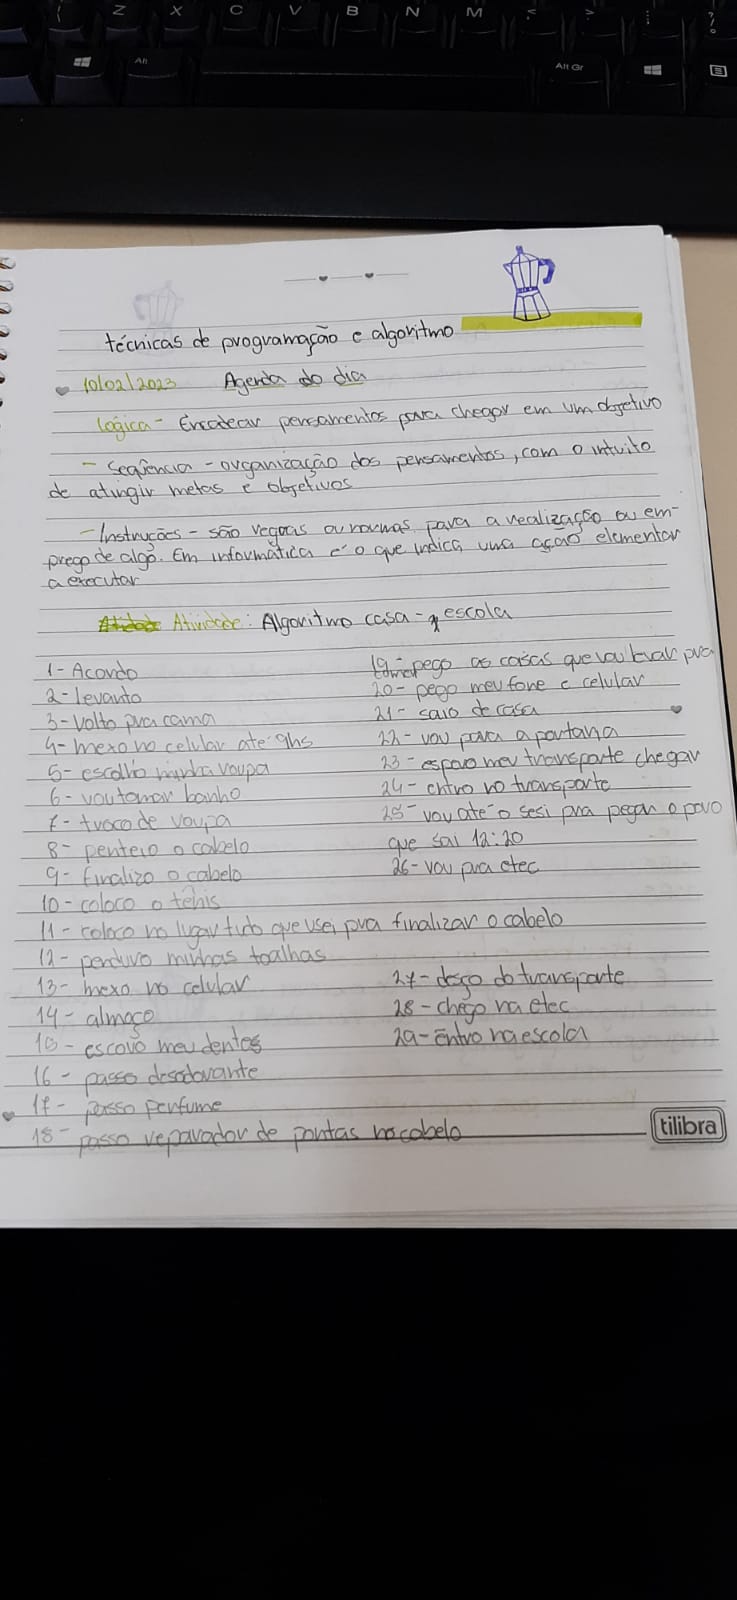 Z X C V B N M < >
Alt Alt Gr
técnicas de programação e algoritmo
10/02/2023 Agenda do dia
Lógica - Encadear pensamentos para chegar em um objetivo
- Sequência - organização dos pensamentos, com o intuito
de atingir metas e objetivos
- Instruções - são regras ou normas para a realização ou em-
prego de algo. Em informática é o que indica uma ação elementar
a executar
Atividade: Algoritmo casa - escola
1- Acordo
2- levanto
3- volto pra cama
4- mexo no celular até 9hs
5- escolho minha roupa
6- vou tomar banho
7- troco de roupa
8- penteio o cabelo
9- finalizo o cabelo
10- coloco o tênis
11- coloco no lugar tudo que usei pra finalizar o cabelo
12- penduro minhas toalhas
13- mexo no celular
14- almoço
15- escovo meu dentes
16- passo desodorante
17- passo perfume
18- passo reparador de pontas no cabelo
19- pego as coisas que vou levar pra
comer
20- pego meu fone e celular
21- saio de casa
22- vou para a portaria
23- espero meu transporte chegar
24- entro no transporte
25- vou até o sesi pra pegar o povo
que sai 12:20
26- vou pra etec
27- desço do transporte
28- chego na etec
29- entro na escola
tilibra